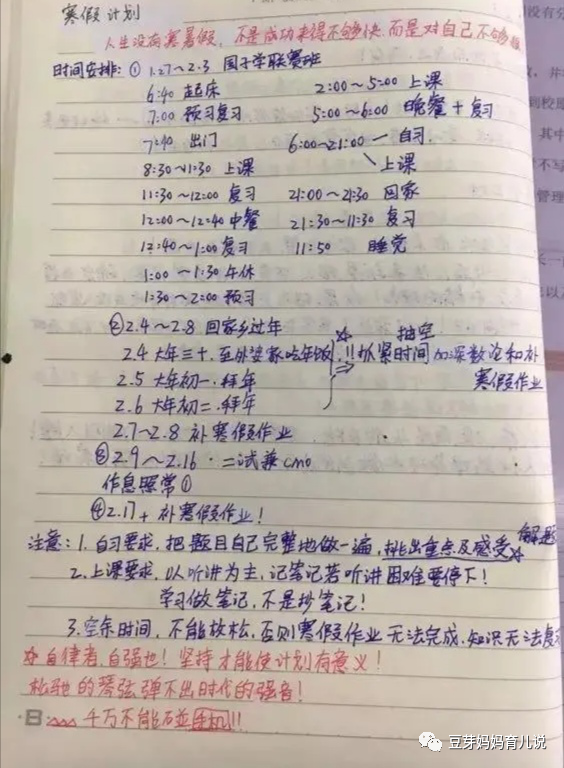 寒假计划
人生没有寒暑假,不是成功来得不够快,而是对自己不够狠
时间安排:① 1.27~2.3 国子学联赛班
6:40 起床 2:00~5:00 上课
7:00 预习复习 5:00~6:00 晚餐+复习
7:40 出门 6:00~21:00 自习.
上课
8:30~11:30 上课
11:30~12:00 复习 21:00~21:30 回家
12:00~12:40 中餐 21:30~11:30 复习
12:40~1:00 复习 11:50 睡觉
1:00~1:30 午休
1:30~2:00 预习
②2.4~2.8 回家乡过年 抽空
2.4 大年三十.至外婆家吃年饭 !!抓紧时间加深数论和补
2.5 大年初一.拜年 寒假作业
2.6 大年初二.拜年
2.7~2.8 补寒假作业
③2.9~2.16.二试兼cmo
作息照常①
④2.17+ 补寒假作业!
注意:1.自习要求,把题目自己完整地做一遍,挑出重点及感受 解题
2.上课要求,以听讲为主,记笔记若听讲困难要停下!
学习做笔记,不是抄笔记!
3.空余时间,不能放松,否则寒假作业无法完成.知识无法复习
自律者,自强也!坚持才能使计划有意义!
松驰的琴弦弹不出时代的强音!
千万不能碰手机!!
豆芽妈妈育儿说